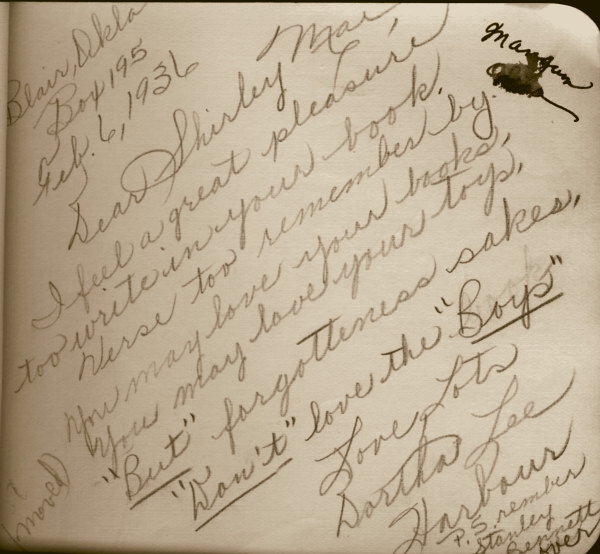 Blair, Okla
Box 195
Feb. 6, 1936
Mangum
Dear Shirley Mae,
I feel a great pleasure
too write in your book.
Verse too remember by.
You may love your books,
You may love your toys,
"But" forgotteness sakes,
"Don't" love the "Boys"
Love Lots
Dortha Lee
Harbour
P.S. rember
Stanley
Bennett
over
(moved)